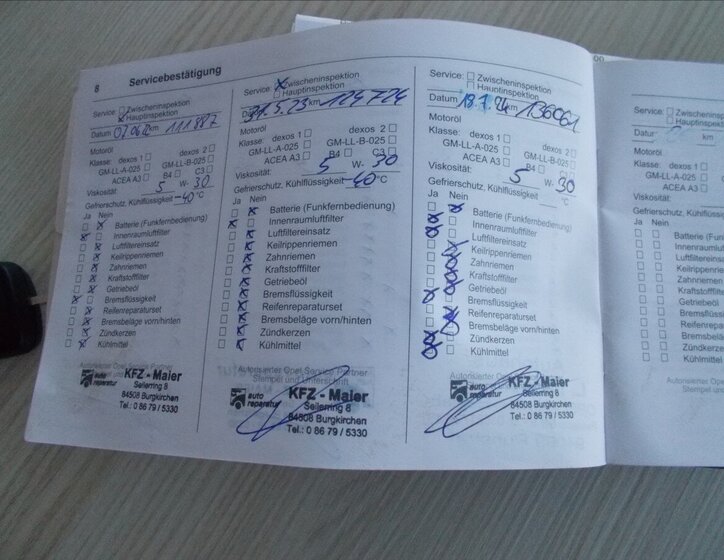 8 Servicebestätigung
Service: Zwischeninspektion
Hauptinspektion
Datum 07.06.22 km 111887
Motoröl
Klasse: dexos 1 dexos 2
GM-LL-A-025 GM-LL-B-025
ACEA A3 B4 C3
Viskosität: 5 W- 30
Gefrierschutz, Kühlflüssigkeit -40 °C
Ja Nein
Batterie (Funkfernbedienung)
Innenraumluftfilter
Luftfiltereinsatz
Keilrippenriemen
Zahnriemen
Kraftstofffilter
Getriebeöl
Bremsflüssigkeit
Reifenreparaturset
Bremsbeläge vorn/hinten
Zündkerzen
Kühlmittel
Autorisierter Opel Service Partner
KFZ - Maier
auto reparatur
Seilerring 8
84508 Burgkirchen
Tel.: 0 86 79 / 5330
Service: Zwischeninspektion
Hauptinspektion
31.5.23 km 124724
Motoröl
Klasse: dexos 1 dexos 2
GM-LL-A-025 GM-LL-B-025
ACEA A3 B4 C3
Viskosität: 5 W- 30
Gefrierschutz, Kühlflüssigkeit -40 °C
Ja Nein
Batterie (Funkfernbedienung)
Innenraumluftfilter
Luftfiltereinsatz
Keilrippenriemen
Zahnriemen
Kraftstofffilter
Getriebeöl
Bremsflüssigkeit
Reifenreparaturset
Bremsbeläge vorn/hinten
Zündkerzen
Kühlmittel
Autorisierter Opel Service Partner
Stempel und Unterschrift
KFZ - Maier
auto reparatur
Seilerring 8
84508 Burgkirchen
Tel.: 0 86 79 / 5330
Service: Zwischeninspektion
Hauptinspektion
Datum 18.7.24 km 136061
Motoröl
Klasse: dexos 1 dexos 2
GM-LL-A-025 GM-LL-B-025
ACEA A3 B4 C3
Viskosität: 5 W- 30
Gefrierschutz, Kühlflüssigkeit °C
Ja Nein
Batterie (Funkfernbedienung)
Innenraumluftfilter
Luftfiltereinsatz
Keilrippenriemen
Zahnriemen
Kraftstofffilter
Getriebeöl
Bremsflüssigkeit
Reifenreparaturset
Bremsbeläge vorn/hinten
Zündkerzen
Kühlmittel
Autorisierter Opel
KFZ - Maier
auto reparatur
Seilerring 8
84508 Burgkirchen
Tel.: 0 86 79 / 5330
Service:
Datum
Motoröl
Klasse: dexos 1
GM-LL-A-025
ACEA A3
Viskosität:
Gefrierschutz, Kühlflüssigkeit
Ja Nein
Luftfiltereinsatz
Keilrippenriemen
Zahnriemen
Kraftstofffilter
Getriebeöl
Bremsflüssigkeit
Zündkerzen
Kühlmittel